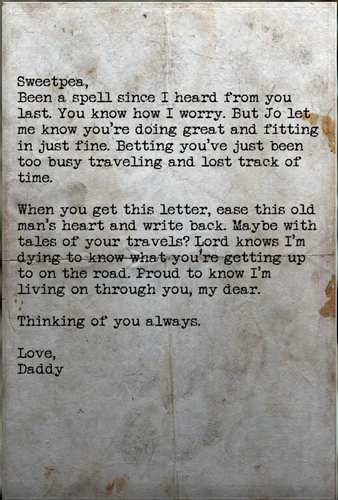 Sweetpea,
Been a spell since I heard from you
last. You know how I worry. But Jo let
me know you're doing great and fitting
in just fine. Betting you've just been
too busy traveling and lost track of
time.
When you get this letter, ease this old
man's heart and write back. Maybe with
tales of your travels? Lord knows I'm
dying to know what you're getting up
to on the road. Proud to know I'm
living on through you, my dear.
Thinking of you always.
Love,
Daddy